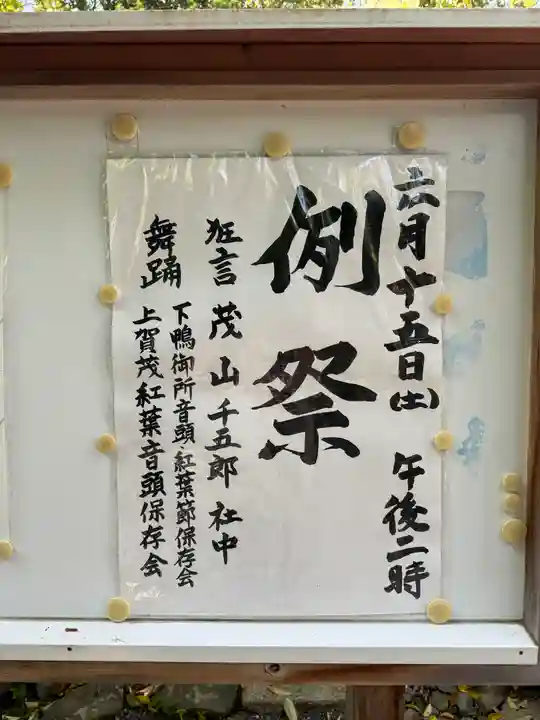 六月十五日(土) 午後二時
例祭
狂言 茂山千五郎 社中
舞踊 下鴨御所音頭・紅葉節保存会
上賀茂紅葉音頭保存会